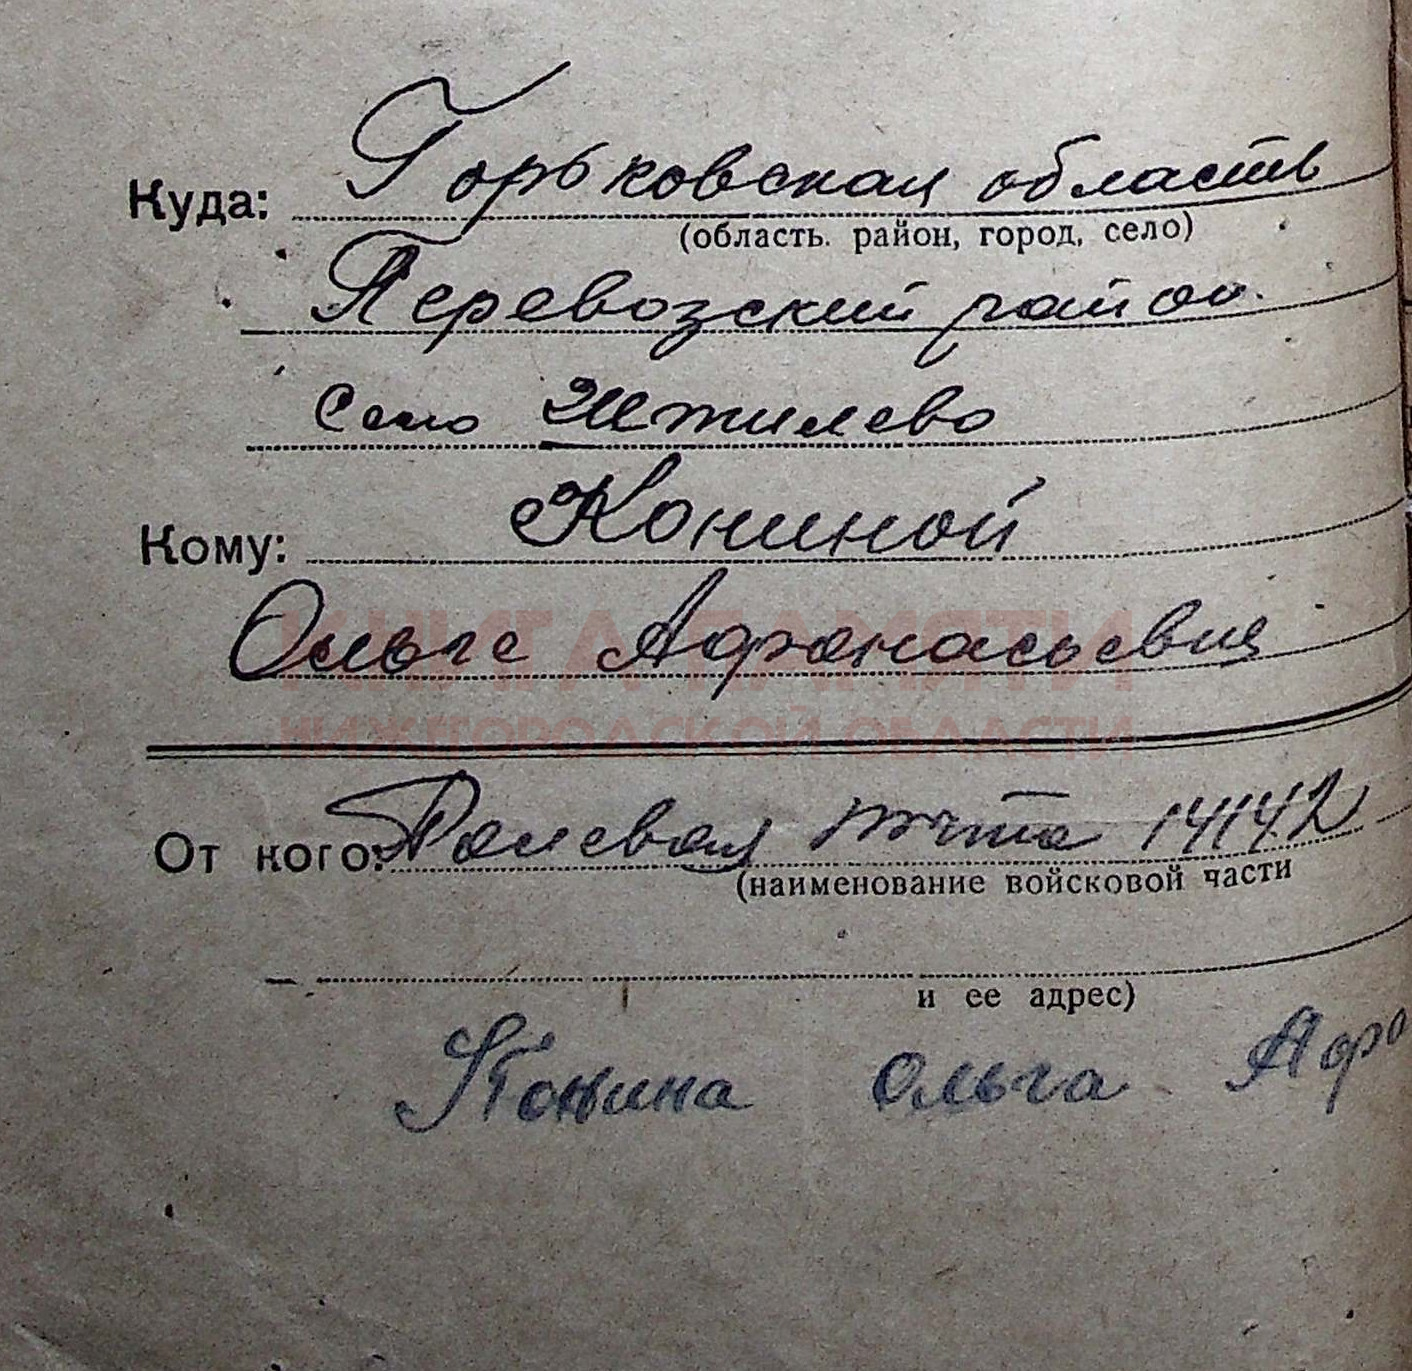 Куда: Горьковская область
(область. район, город, село)
Перевозский район.
село Шпилево
Кому: Кониной
Ольге Афанасьевне
КНИГА ПАМЯТИ
НИЖЕГОРОДСКОЙ ОБЛАСТИ
От кого: Полевая почта 14142
(наименование войсковой части
и ее адрес)
Конина Ольга Афо